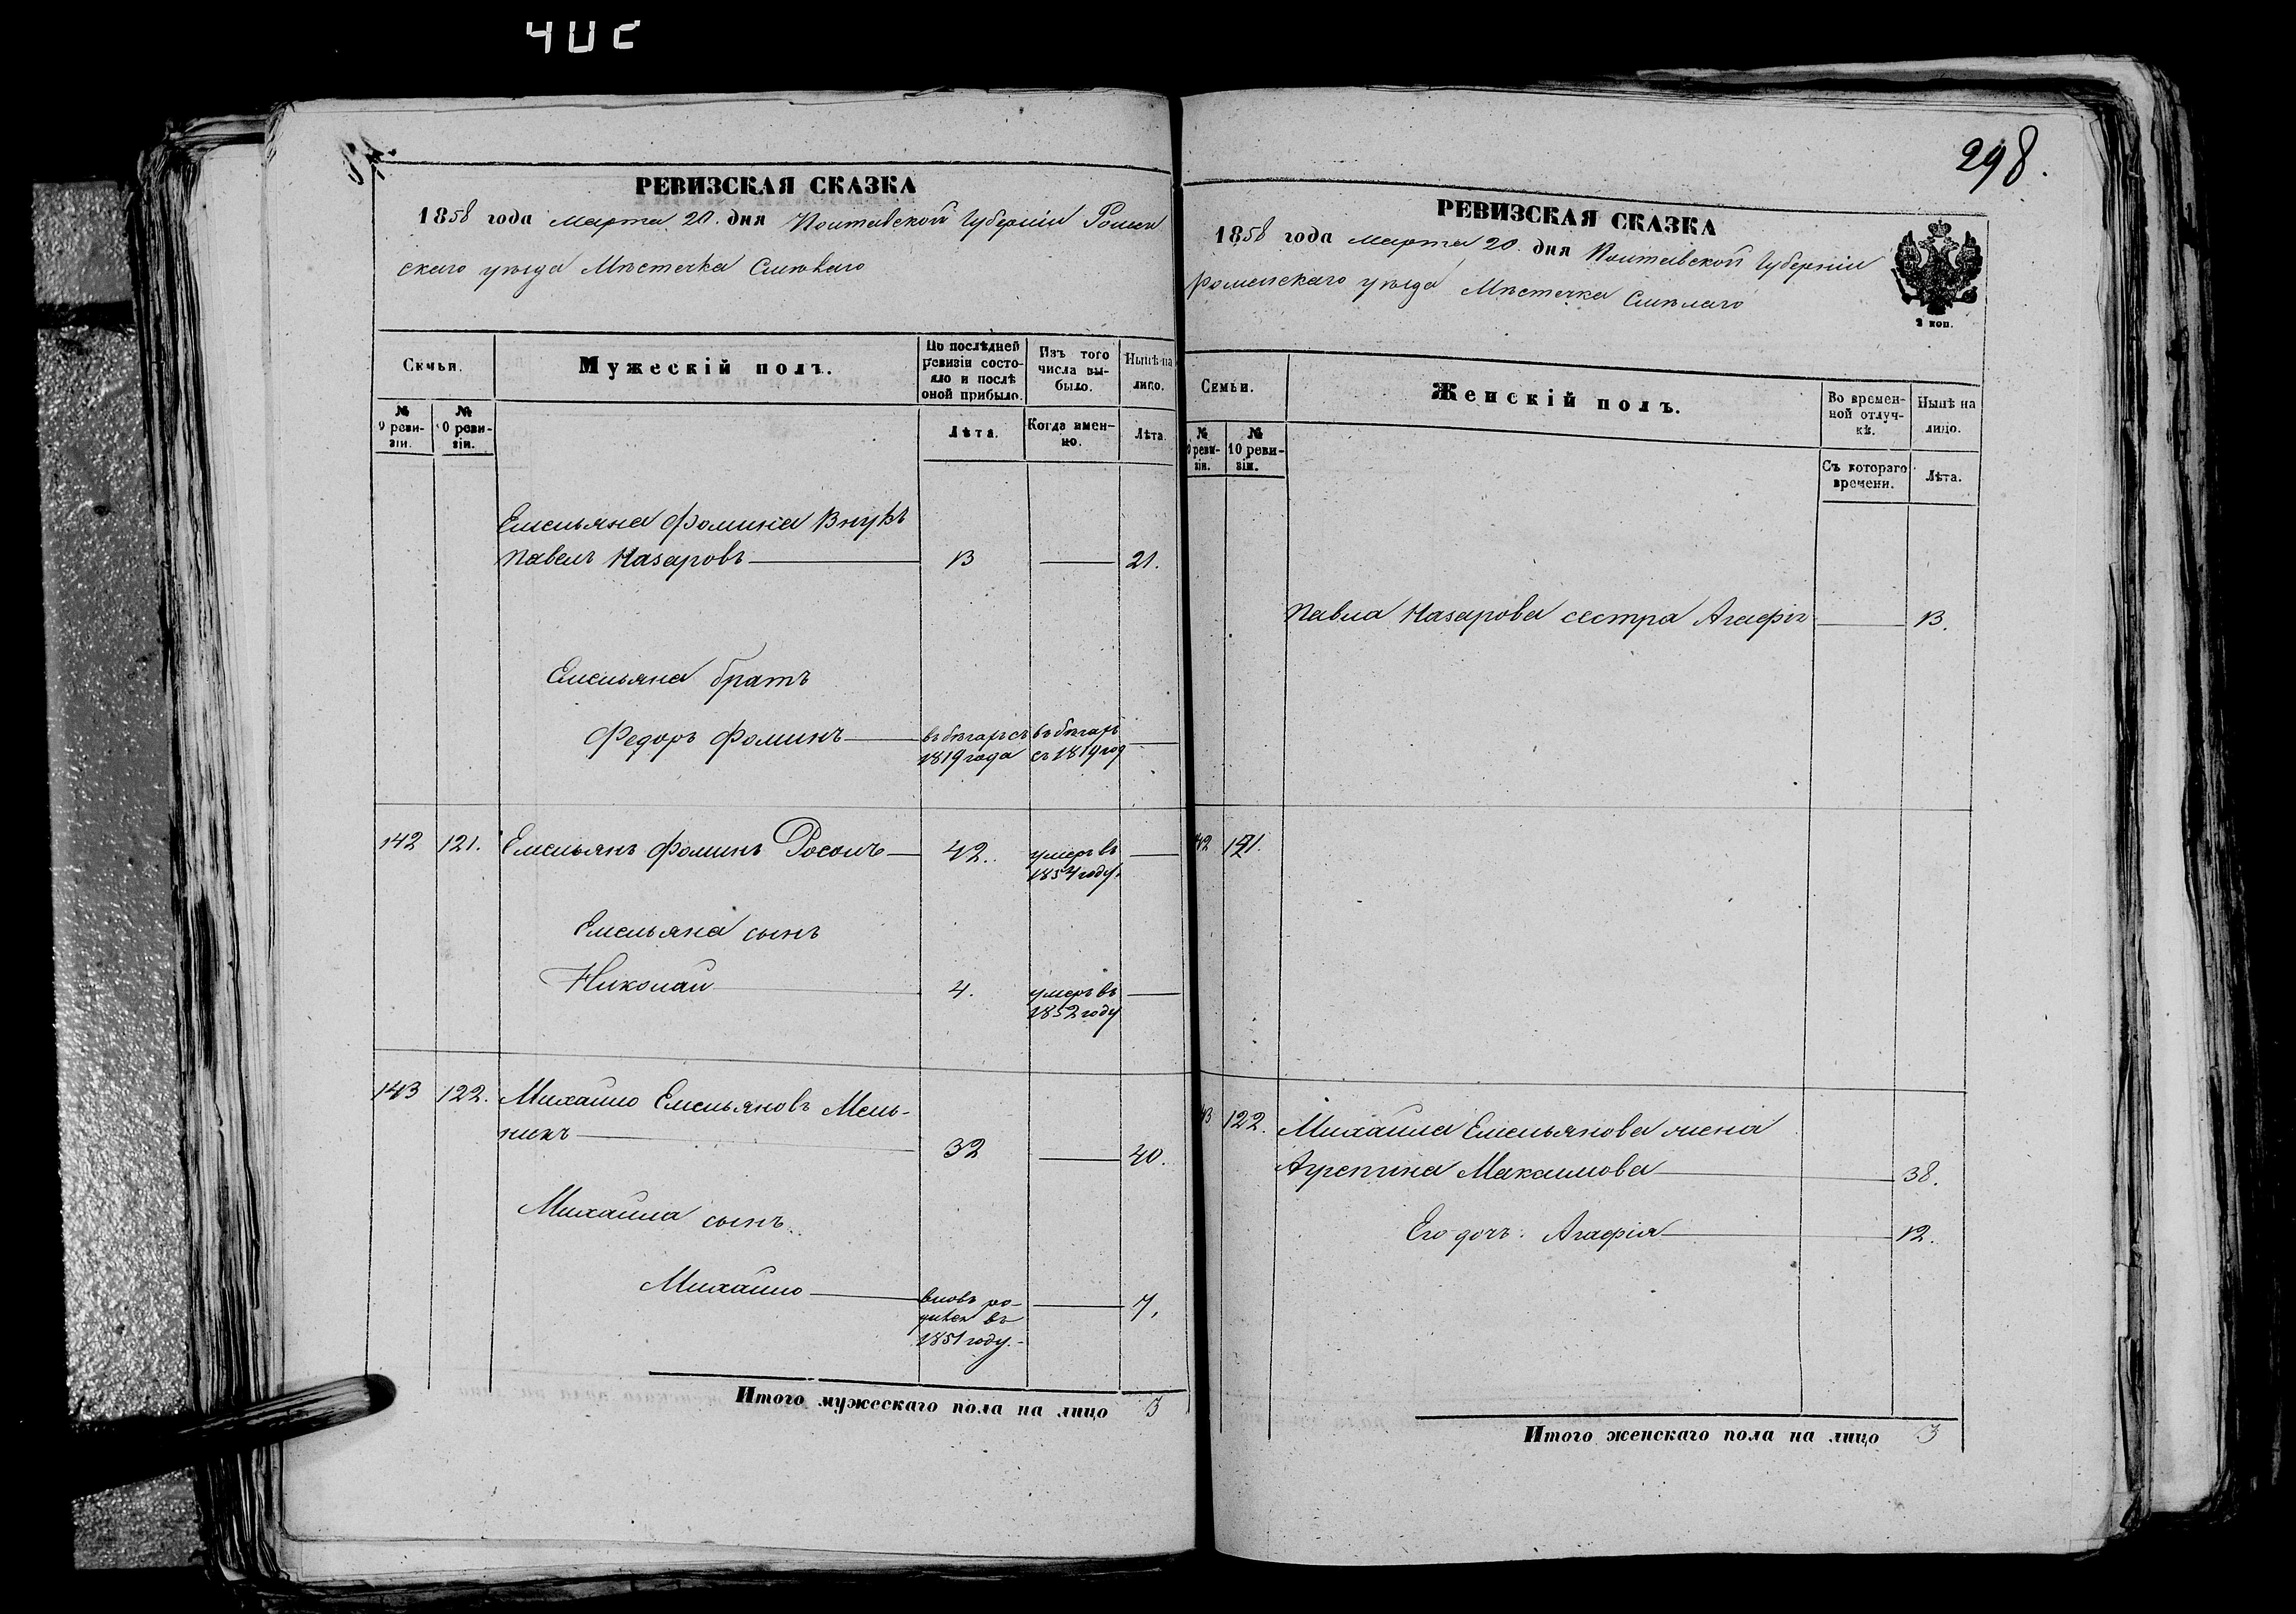 4UC
РЕВИЗСКАЯ СКАЗКА
1858 года марта 20. дня Полтавской Губерніи Ромен
скаго уѣзда Мѣстечка Смѣлаго
Семьи.
Мужескій полъ.
По послѣдней ревизіи состояло и послѣ оной прибыло.
Изъ того числа выбыло.
Нынѣ на лицо.
№ 9 ревизіи.
№ 10 ревизіи.
Лѣта.
Когда именно.
Лѣта.
Емельяна Фомина Внукъ
Павелъ Назаровъ 13 21.
Емельяна братъ
Федоръ Фоминъ въ бѣгахъ съ 1819 года въ бѣгахъ съ 1819 год
142 121. Емельянъ Фоминъ 42. умеръ въ 1854 году.
Емельяна сынъ
Николай 4. умеръ въ 1852 году
143 122. Михайло Емельяновъ Мель-
никъ 32 40.
Михайла сынъ
Михайло вновь родился въ 1851 году. 7.
Итого мужескаго пола на лицо 3
298.
РЕВИЗСКАЯ СКАЗКА
1858 года марта 20. дня Полтавской Губерніи
Роменскаго уѣзда Мѣстечка Смѣлаго
2 коп.
Семьи.
Женскій полъ.
Во временной отлучкѣ.
Нынѣ на лицо.
№ 9 ревизіи.
№ 10 ревизіи.
Съ котораго времени.
Лѣта.
Павла Назарова сестра Агафія 13.
42 121.
43 122. Михайла Емельянова жена
Агрепина Максимова 38.
Его дочь: Агафія 12.
Итого женскаго пола на лицо 3